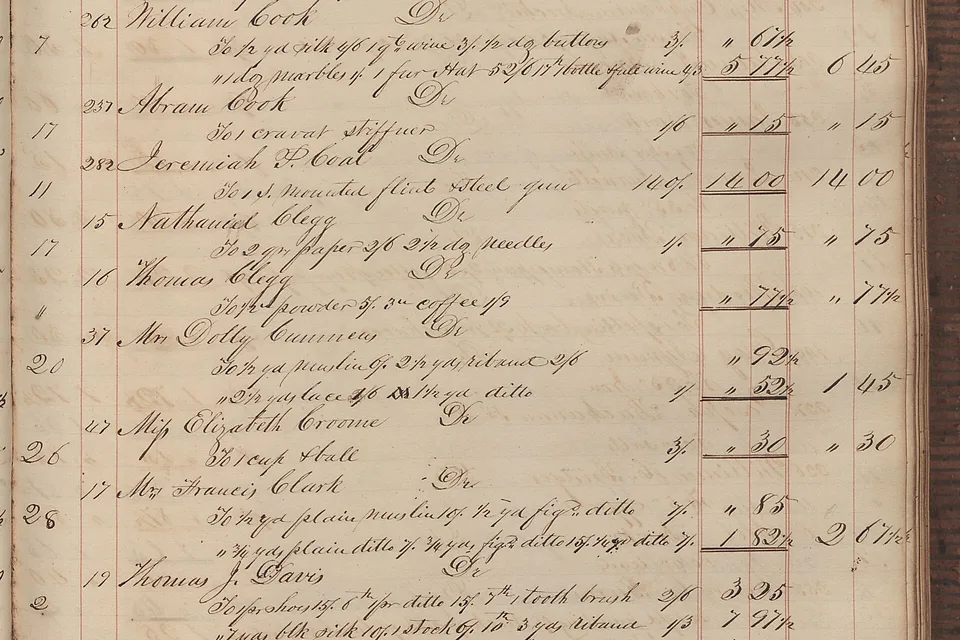 262 William Cook Dr
7 To ½ yd silk 4/6 1 qt wine 3/. ½ dz buttons 3/. " 67½
" 1 dz marbles 1/. 1 fur Hat 52/6 17th bottle & full wine 4/3 5 77½ 6 45
237 Abram Cook Dr
17 To 1 cravat stiffner 1/6 " 15 " 15
282 Jeremiah P. Coal Dr
11 To 1 s. mounted flint & steel gun 140/. 14 00 14 00
15 Nathaniel Clegg Dr
17 To 2 qrs paper 2/6 2½ dz needles 1/. " 75 " 75
16 Thomas Clegg Dr
" To ½ powder 5/. 3 coffee 1/9 " 77½ " 77½
37 Mrs Dolly Dr
20 To ½ yd muslin 6/. 2½ yds riband 2/6 " 92½
" 2½ yds lace 1½ yd ditto 1/ " 52½ 1 45
47 Miss Elizabeth Croome Dr
26 To 1 cup & ball 3/. " 30 " 30
17 Mrs Francis Clark Dr
28 To ½ yd plain muslin 10/. ½ yd figd. ditto 7/. " 85
" ¾ yds plain ditto 7/. ¾ yds figd ditto 15/. ditto 7/. 1 82½ 2 67½
19 Thomas J. Davis Dr
2 To 1 pr shoes 15/. 6th 1 pr ditto 15/. 7th 1 tooth brush 2/6 3 25
" 7 yds blk silk 10/. 1 stock 6/. 10th 3 yds riband 1/3 7 97½